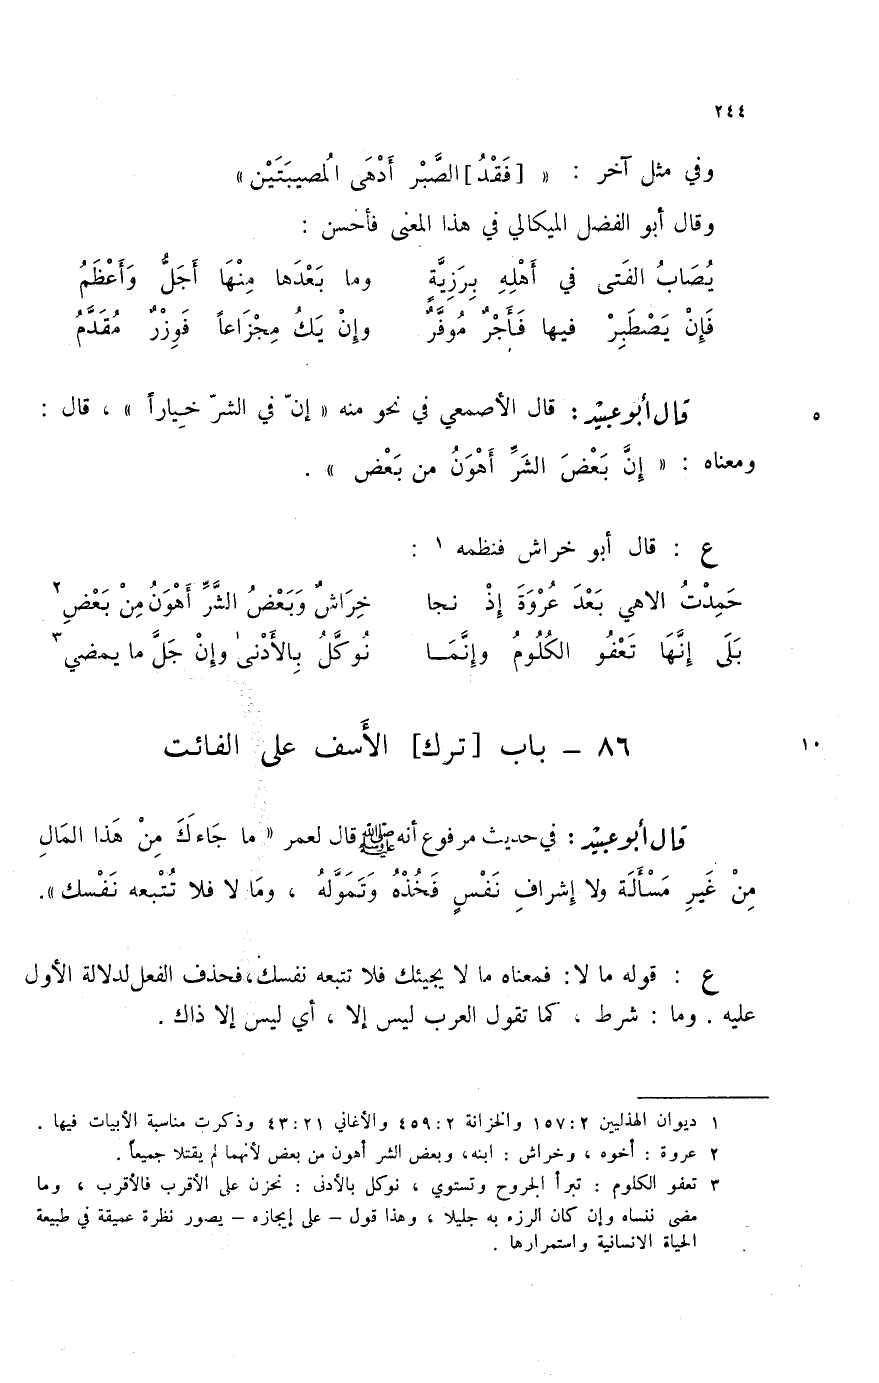 ٢٤٤
وفي مثل آخر : « [فَقْدُ] الصَّبْر أَدْهَى المُصيبَتَيْن »
وقال أبو الفضل الميكالي في هذا المعنى فأحسن :
يُصَابُ الفَتى في أَهْلِهِ بِرَزِيَّةٍ وما بَعْدَها مِنْهَا أَجَلُّ وَأَعْظَمُ
فَإِنْ يَصْطَبِرْ فيها فَأَجْرٌ مُوفَّرٌ وإِنْ يَكُ مِجْزَاعاً فَوِزْرٌ مُقَدَّمُ
٥ قال أبو عبيد : قال الأصمعي في نحو منه « إنّ في الشرّ خياراً » ، قال :
ومعناه : « إِنَّ بَعْضَ الشَرِّ أَهْوَنُ من بَعْض » .
ع : قال أبو خراش فنظمه ١ :
حَمِدْتُ الاهي بَعْدَ عُرْوَةَ إِذْ نجا خِرَاشٌ وَبَعْضُ الشَّرِّ أَهْوَنُ مِنْ بَعْضِ٢
بَلَى إِنَّهَا تَعْفُو الكُلُومُ وإِنَّمَا نُوكَّلُ بِالأَدْنىٰ وإِنْ جَلَّ ما يمضي٣
١٠ ٨٦ – باب [ترك] الأَسف على الفائت
قال أبو عبيد : في حديث مرفوع أنه ﷺ قال لعمر « ما جَاءكَ مِنْ هَذا المَالِ
مِنْ غَيرِ مَسْأَلَة ولا إشرافِ نَفْسٍ فَخُذْهُ وَتَمَوَّلهُ ، ومَا لا فلا تُتْبعه نَفْسك ».
ع : قوله ما لا : فمعناه ما لا يجيئك فلا تتبعه نفسك ، فحذف الفعل لدلالة الأول
عليه . وما : شرط ، كما تقول العرب ليس إلا ، أي ليس إلا ذاك .
١ ديوان الهذليين ٢ : ١٥٧ والخزانة ٢ : ٤٥٩ والأغاني ٢١ : ٤٣ وذكرت مناسبة الأبيات فيها .
٢ عروة : أخوه ، وخراش : ابنه ، وبعض الشر أهون من بعض لأنهما لم يقتلا جميعاً .
٣ تعفو الكلوم : تبرأ الجروح وتستوي ، نوكل بالأدنى : نحزن على الأقرب فالأقرب ، وما
مضى ننساه وإن كان الرزء به جليلا ، وهذا قول – على إيجازه – يصور نظرة عميقة في طبيعة
الحياة الانسانية واستمرارها .